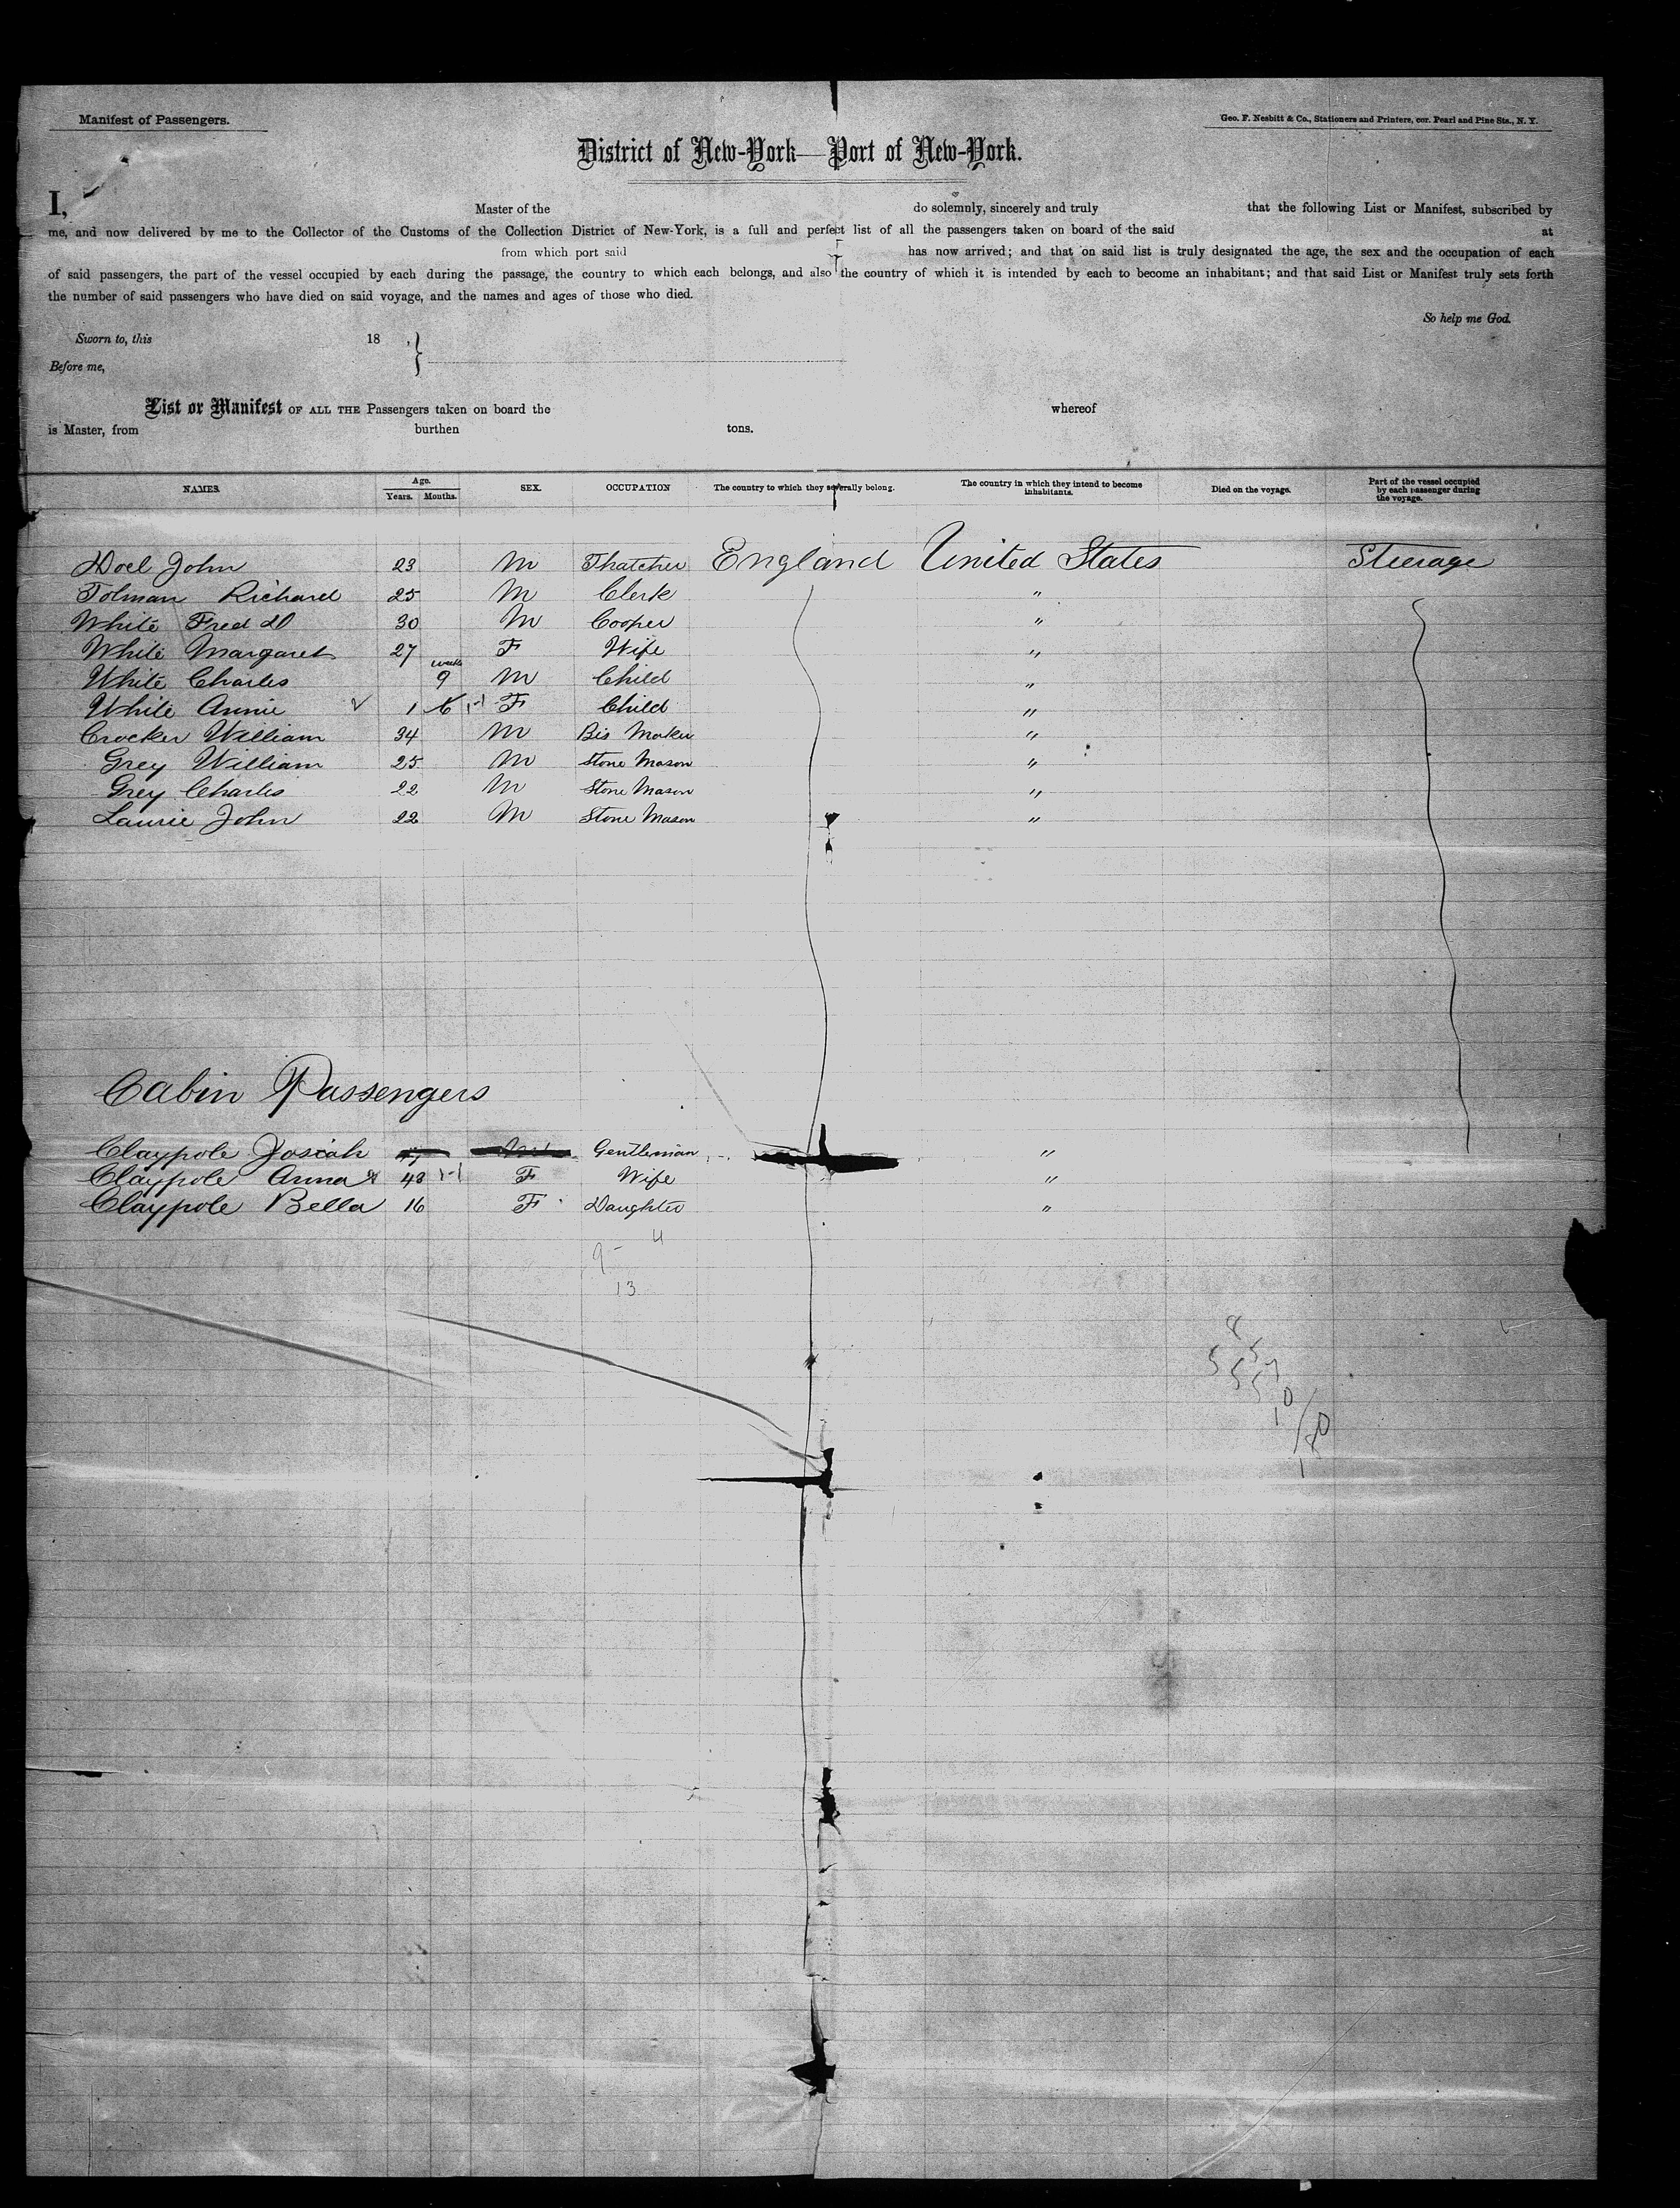 Manifest of Passengers.
Geo. F. Nesbitt & Co., Stationers and Printers, cor. Pearl and Pine Sts., N. Y.
District of New-York—Port of New-York.
I, Master of the do solemnly, sincerely and truly that the following List or Manifest, subscribed by
me, and now delivered by me to the Collector of the Customs of the Collection District of New-York, is a full and perfect list of all the passengers taken on board of the said at
from which port said has now arrived; and that on said list is truly designated the age, the sex and the occupation of each
of said passengers, the part of the vessel occupied by each during the passage, the country to which each belongs, and also the country of which it is intended by each to become an inhabitant; and that said List or Manifest truly sets forth
the number of said passengers who have died on said voyage, and the names and ages of those who died.
So help me God.
Sworn to, this 18 ,
Before me,
List or Manifest OF ALL THE Passengers taken on board the whereof
is Master, from burthen tons.
NAMES. Age. Years. Months. SEX. OCCUPATION The country to which they severally belong. The country in which they intend to become inhabitants. Died on the voyage. Part of the vessel occupied by each passenger during the voyage.
Doel John 23 M Thatcher England United States Steerage
Tolman Richard 25 M Clerk "
White Fred 30 M Cooper "
White Margaret 27 F Wife "
White Charles weeks 9 M Child "
White Annie 1 6 F Child "
Crocker William 34 M Bis Maker "
Grey William 25 M Stone Mason "
Grey Charles 22 M Stone Mason "
Laurie John 22 M Stone Mason "
Cabin Passengers
Claypole Josiah Gentleman "
Claypole Anna 48 F Wife "
Claypole Bella 16 F Daughter "
9 - 4
13